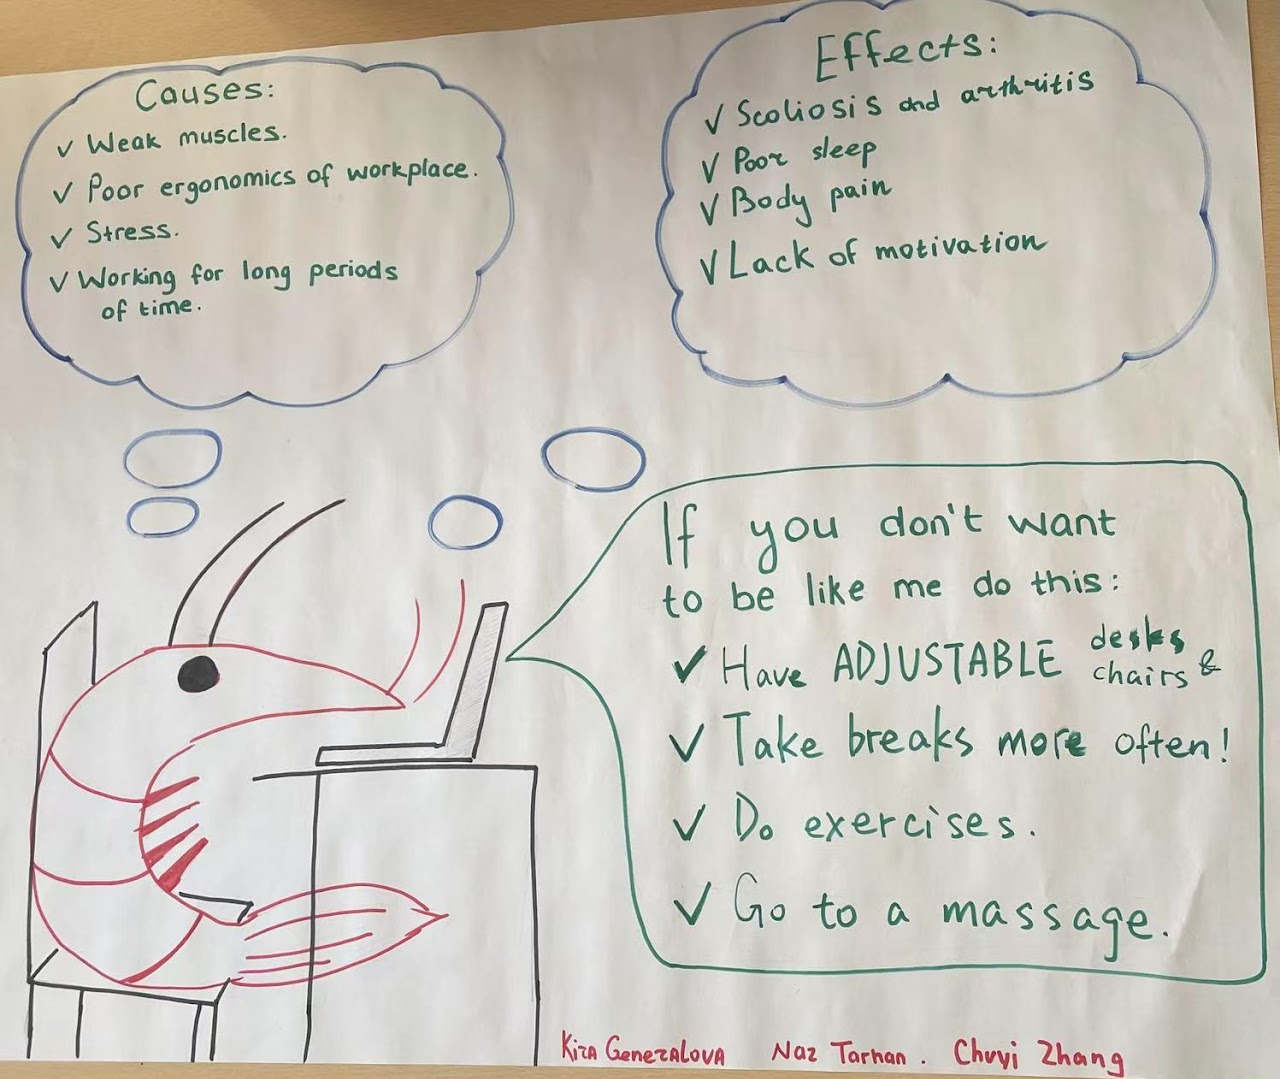 Causes:
✓ Weak muscles.
✓ Poor ergonomics of workplace.
✓ Stress.
✓ Working for long periods
of time.
Effects:
✓ Scoliosis and arthritis
✓ Poor sleep
✓ Body pain
✓ Lack of motivation
If you don't want
to be like me do this:
✓ Have ADJUSTABLE desks
chairs &
✓ Take breaks more often!
✓ Do exercises.
✓ Go to a massage.
Kira Generalova Naz Tarhan. Chuyi Zhang